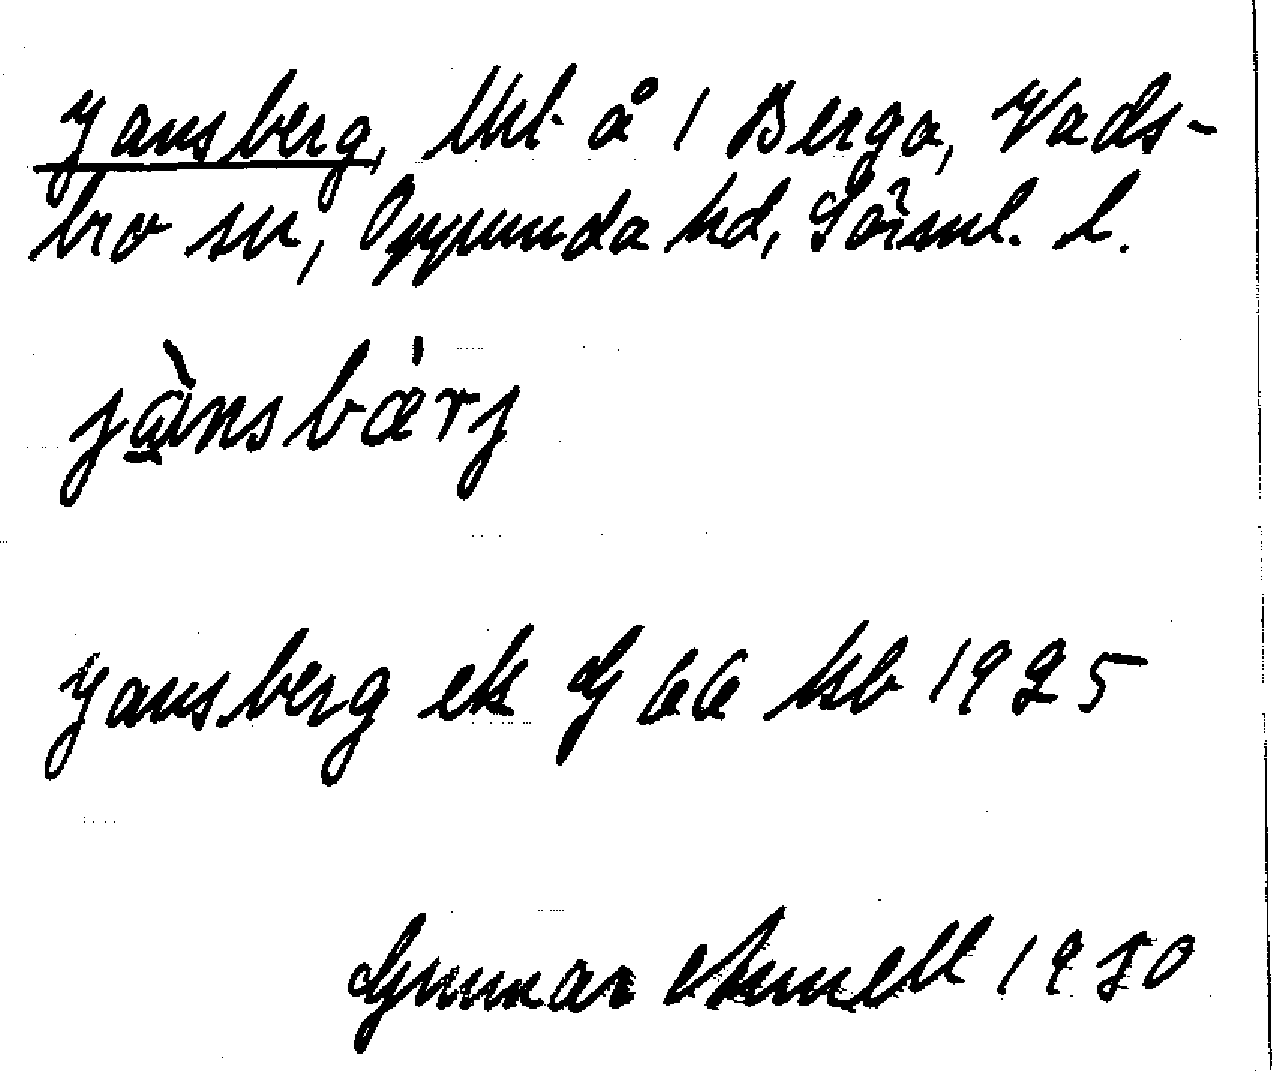 Jansberg, lht å 1 Berga, Vads-
bro sn, Oppunda hd, Sörml. l.
jànsbæ̀rj
Jansberg ek G 66 hsb 1925
Gunnar 1930